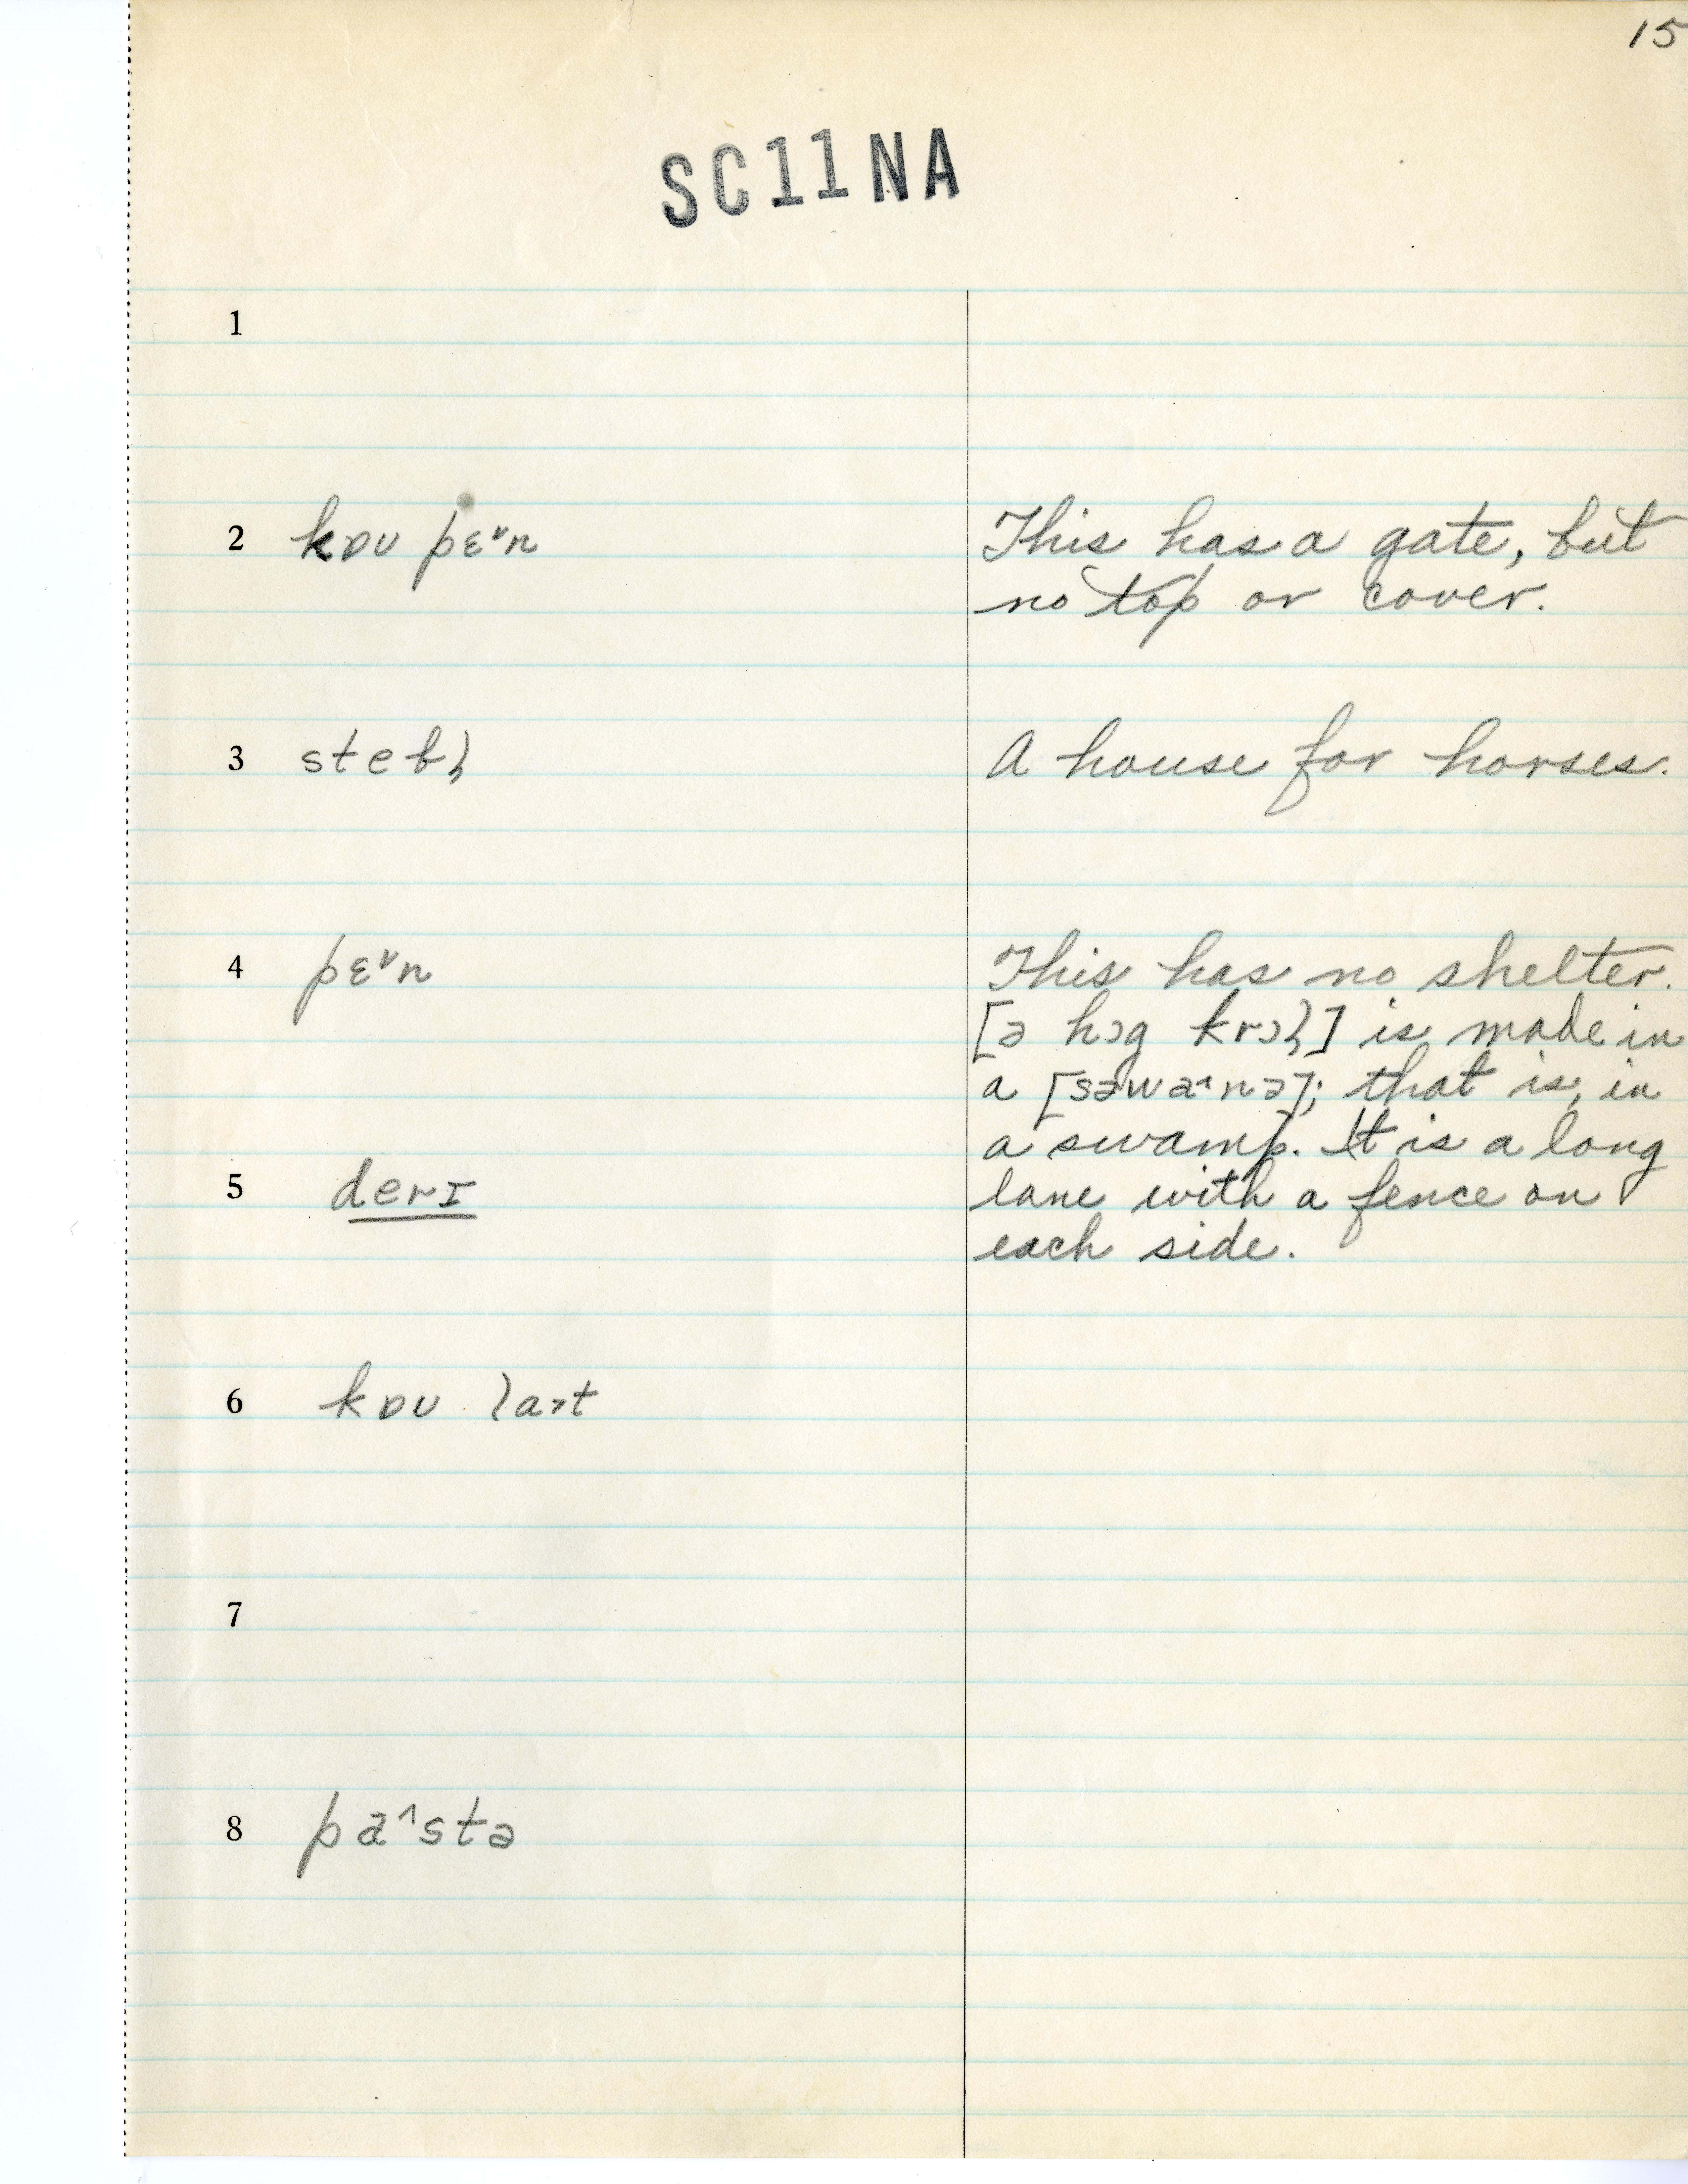 15
SC11NA
1
2 kɒʊ pɛ˅n This has a gate, but
no top or cover.
3 stebl̩ A house for horses.
4 pɛ˅n This has no shelter.
[ə hɔg krɔl̩] is made in
a [səwa˄nə]; that is, in
a swamp. It is a long
5 derɪ lane with a fence on
each side.
6 kɒʊ la˃t
7
8 pa˄stə